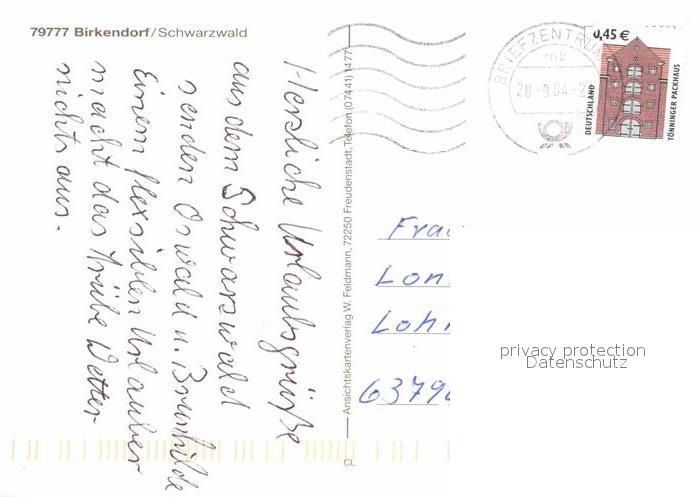 79777 Birkendorf/Schwarzwald
Herzliche Urlaubsgrüße
aus dem Schwarzwald
senden Oswald u. Brunhilde
Einem flexsiblen Urlauber
macht das trübe Wetter
nichts aus.
Ansichtskartenverlag W. Feldmann, 72250 Freudenstadt, Telefon (07441) 1477
BRIEFZENTRUM
28.9.04-2
0,45 €
DEUTSCHLAND
TÖNNINGER PACKHAUS
Frau
Lon
Loh
6379
privacy protection
Datenschutz